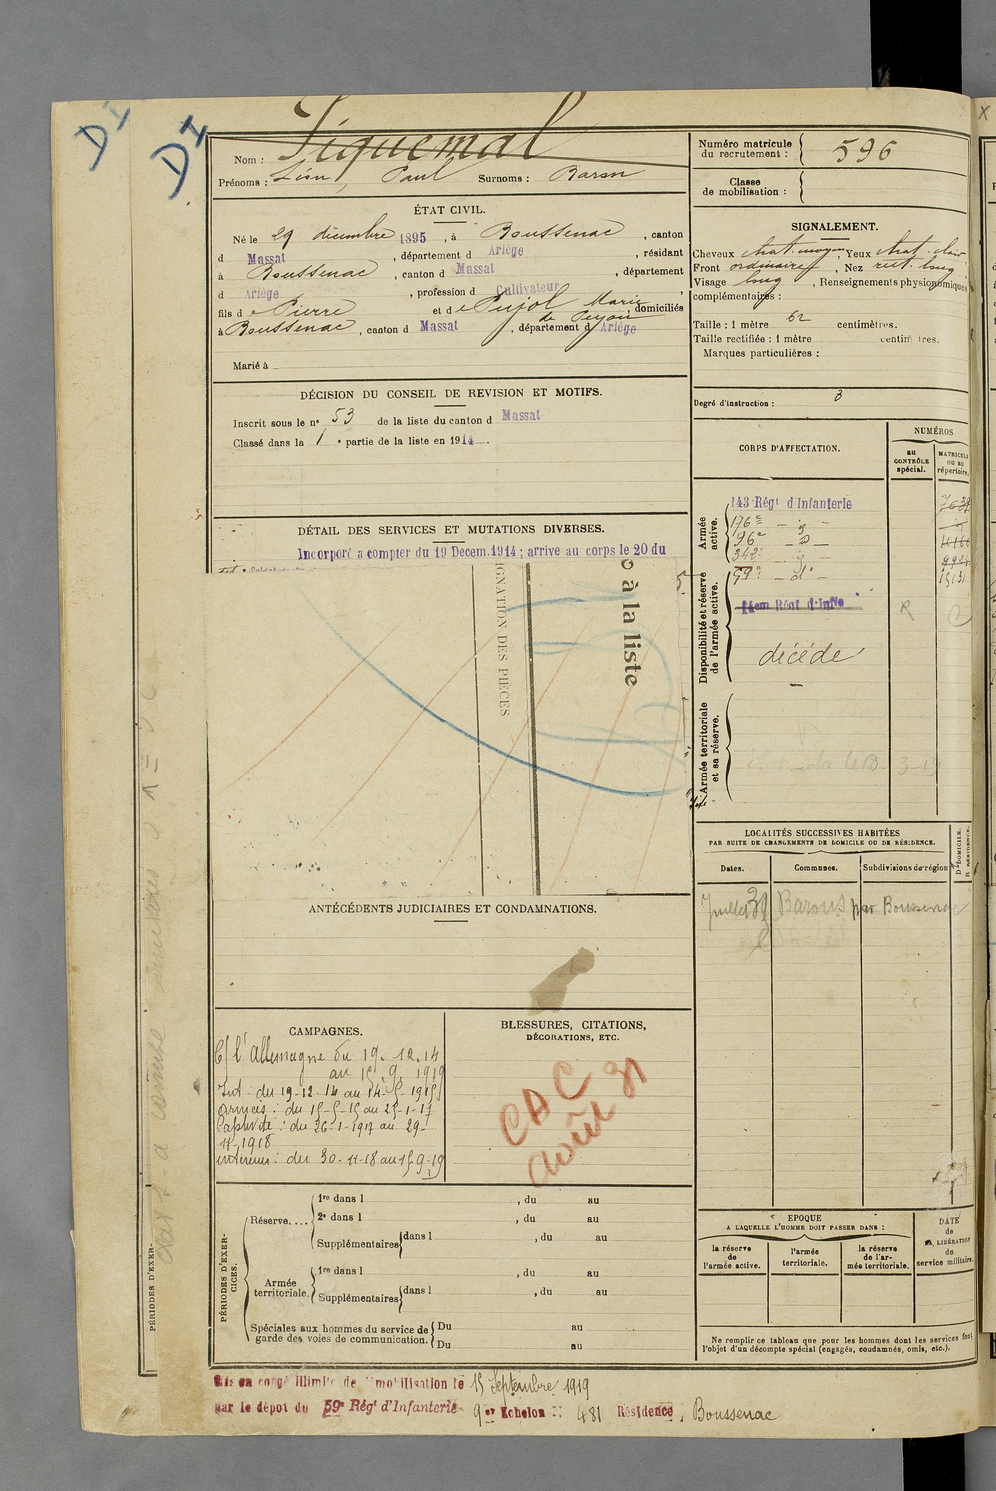 DI
DI
Nom : Siguemal
Prénoms : Léon, Paul Surnoms : Baron
Numéro matricule du recrutement : 596
Classe de mobilisation :
ÉTAT CIVIL.
Né le 29 décembre 1895, à Boussenac, canton
d Massat, département d Ariège, résidant
à Boussenac, canton d Massat, département
d Ariège, profession d Cultivateur,
fils de Pierre et de Pujol Marie domiciliés
de Peyou
à Boussenac, canton d Massat, département d Ariège
Marié à
SIGNALEMENT.
Cheveux chat. moyen, Yeux chat. clair
Front ordinaire, Nez rect. long
Visage long, Renseignements physionomiques
complémentaires :
Taille : 1 mètre 62 centimètres.
Taille rectifiée : 1 mètre centimètres.
Marques particulières :
Degré d'instruction : 3
DÉCISION DU CONSEIL DE REVISION ET MOTIFS.
Inscrit sous le nº 53 de la liste du canton d Massat
Classé dans la 1e partie de la liste en 1914.
DÉTAIL DES SERVICES ET MUTATIONS DIVERSES.
Incorporé a compter du 19 Decem.1914 ; arrive au corps le 20 du
IGNATION DES PIÈCES
à la liste
CORPS D'AFFECTATION.
NUMÉROS
au CONTRÔLE spécial.
MATRICULE OU AU répertoire.
Armée active.
143 Régt d'Infanterie
176e — d —
96e — d —
342e — d —
Disponibilité et réserve de l'armée active.
59e — do —
14em Régt d'Inffie
R
décédé
Armée territoriale et sa réserve.
LOCALITÉS SUCCESSIVES HABITÉES
PAR SUITE DE CHANGEMENTS DE DOMICILE OU DE RÉSIDENCE.
Dates. Communes. Subdivisions de région
D. DOMICILE. R. RÉSIDENCE.
Juillet 31 Barous par Boussenac
ANTÉCÉDENTS JUDICIAIRES ET CONDAMNATIONS.
CAMPAGNES.
C/ l'Allemagne du 19.12.14
au 15.9.1919
Int. du 19-12-14 au 14-5-1915
armées : du 15-5-15 au 25-1-17
Captivité : du 26-1-1917 au 29-
11-1918
intérieur : du 30-11-18 au 15-9-19
BLESSURES, CITATIONS,
DÉCORATIONS, ETC.
CAC
août 31
PÉRIODES D'EXER-
PÉRIODES D'EXERCICES.
Réserve....
1re dans l , du au
2e dans l , du au
Supplémentaires dans l , du au
Armée territoriale.
1re dans l , du au
Supplémentaires dans l , du au
Spéciales aux hommes du service de
garde des voies de communication.
Du au
Du au
EPOQUE
A LAQUELLE L'HOMME DOIT PASSER DANS :
la réserve de l'armée active.
l'armée territoriale.
la réserve de l'armée territoriale.
DATE de LA LIBÉRATION du service militaire.
Ne remplir ce tableau que pour les hommes dont les services font
l'objet d'un décompte spécial (engagés, condamnés, omis, etc.).
Mis en congé illimité de démobilisation le 15 Septembre 1919
par le dépôt du 59e Régt d'Infanterie 9e Echelon N 481 Résidence, Boussenac